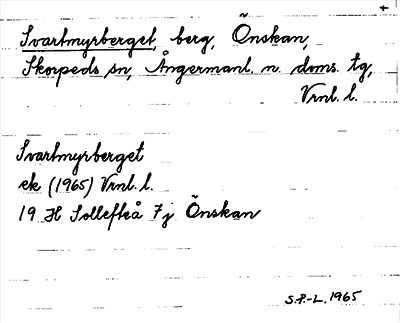 Svartmyrberget, berg, Önskan,
Skorpeds sn, Ångermanl. n. doms. tg,
Vrnl. l.
Svartmyrberget
ek (1965) Vrnl. l.
19 H Sollefteå 7j Önskan
S.P.-L. 1965